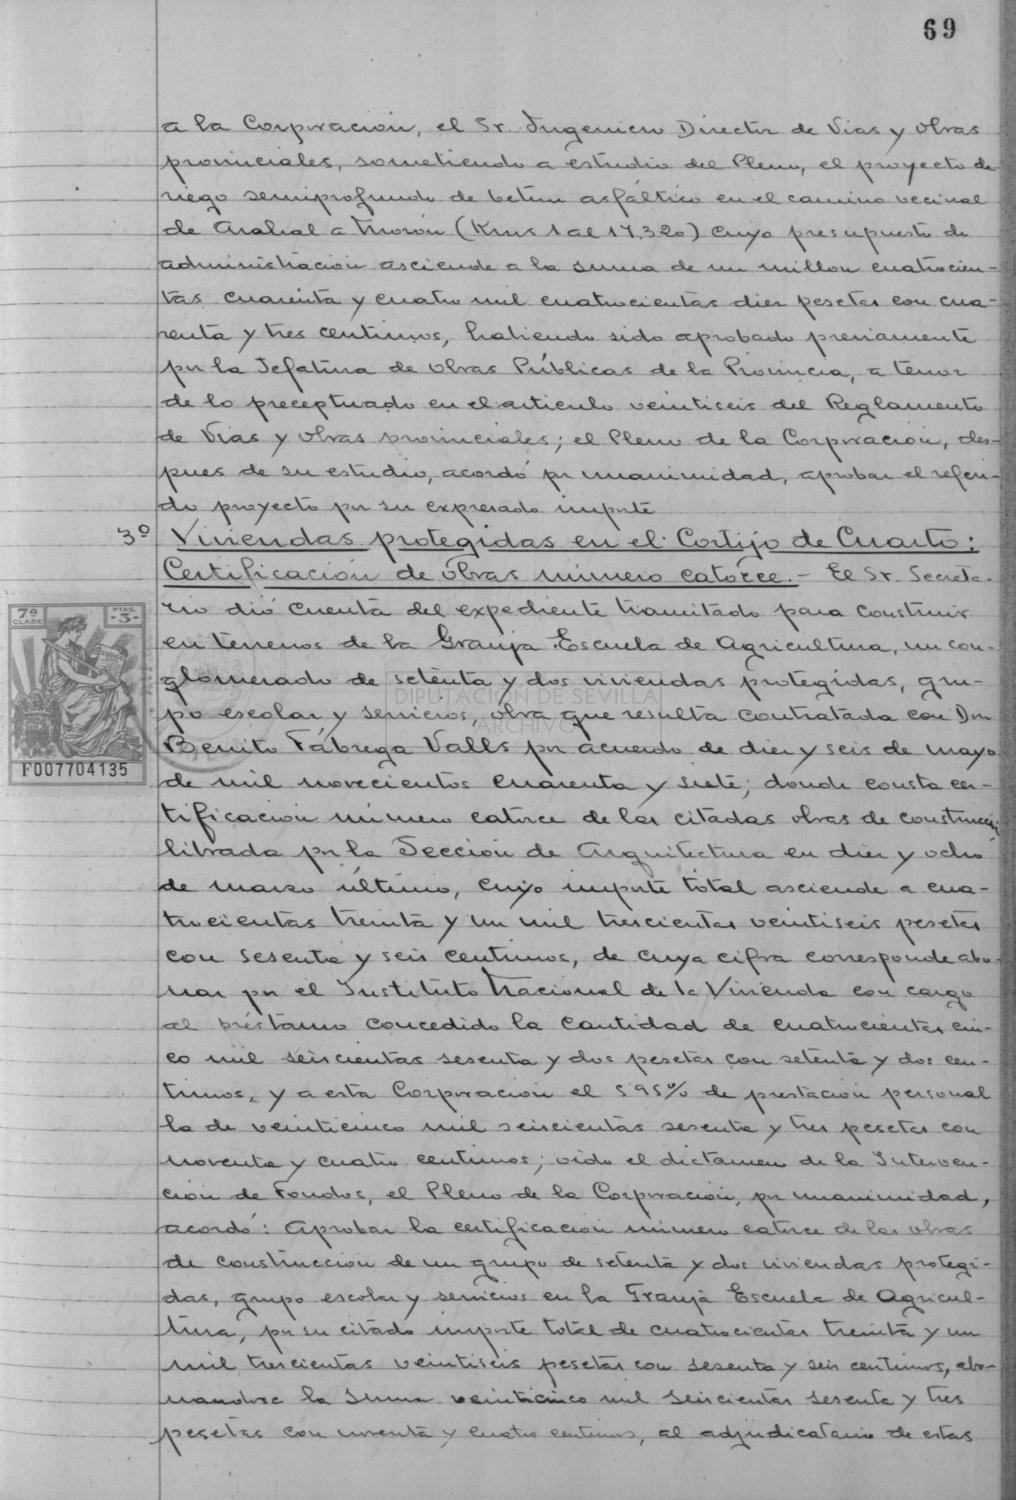 69
a la Corporación, el Sr. Ingeniero Director de Vias y Obras
provinciales, sometiendo a estudio del Pleno, el proyecto de
riego semiprofundo de betun asfáltico en el camino vecinal
de Arahal a Morón (Kms 1 al 17.320) cuyo presupuesto de
administracion asciende a la suma de un millon cuatrocien-
tas cuarenta y cuatro mil cuatrocientas diez pesetas con cua-
renta y tres centimos, habiendo sido aprobado previamente
por la Jefatura de Obras Públicas de la Provincia, a tenor
de lo preceptuado en el articulo veintiseis del Reglamento
de Vias y Obras provinciales; el Pleno de la Corporación, des-
pues de su estudio, acordó por unanimidad, aprobar el referi-
do proyecto por su expresado importe
3º Viviendas protegidas en el Cortijo de Cuarto:
Certificación de obras número catorce. - El Sr. Secreta-
rio dió cuenta del expediente tramitado para construir
en terrenos de la Granja Escuela de Agricultura, un con-
glomerado de setenta y dos viviendas protegidas, gru-
po escolar y servicios, obra que resulta contratada con Don
Benito Fábrega Valls por acuerdo de diez y seis de mayo
de mil novecientos cuarenta y siete; donde consta cer-
tificacion número catorce de las citadas obras de construcción
librada por la Sección de Arquitectura en diez y ocho
de marzo último, cuyo importe total asciende a cua-
trocientas treinta y un mil trescientas veintiseis pesetas
con sesenta y seis centimos, de cuya cifra corresponde abo-
nar por el Instituto Nacional de la Vivienda con cargo
al préstamo concedido la cantidad de cuatrocientas cin-
co mil seiscientas sesenta y dos pesetas con setenta y dos cen-
timos, y a esta Corporacion el 5'95% de prestacion personal
la de veinticinco mil seiscientas sesenta y tres pesetas con
noventa y cuatro centimos; vido el dictamen de la Interven-
ción de Fondos, el Pleno de la Corporación, por unanimidad,
acordó: Aprobar la certificación número catorce de las obras
de construcción de un grupo de setenta y dos viviendas protegi-
das, grupo escolar y servicios en la Granja Escuela de Agricul-
tura, por su citado importe total de cuatrocientas treinta y un
mil trescientas veintiseis pesetas con sesenta y seis centimos, abo-
nandose la suma veinticinco mil seiscientas sesenta y tres
pesetas con noventa y cuatro centimos, al adjudicatario de estas
7ª CLASE
PTAS. -3-
F007704135
DIPUTACIÓN DE SEVILLA
ARCHIVO